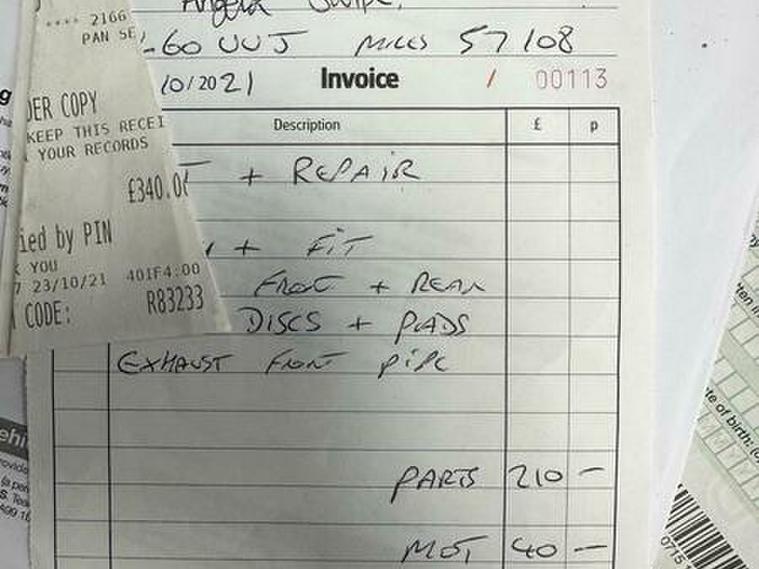 **** 2166
PAN SE
DER COPY
KEEP THIS RECEI
YOUR RECORDS
£340.0
ied by PIN
YOU
23/10/21 401F4:00
CODE: R83233
Angela
60 UUJ MILES 57108
10/2021 Invoice / 00113
Description £ p
+ REPAIR
+ FIT
FRONT + REAR
DISCS + PADS
EXHAUST FRONT PIPE
PARTS 210 —
MOT 40 —
ate of birth:
0715